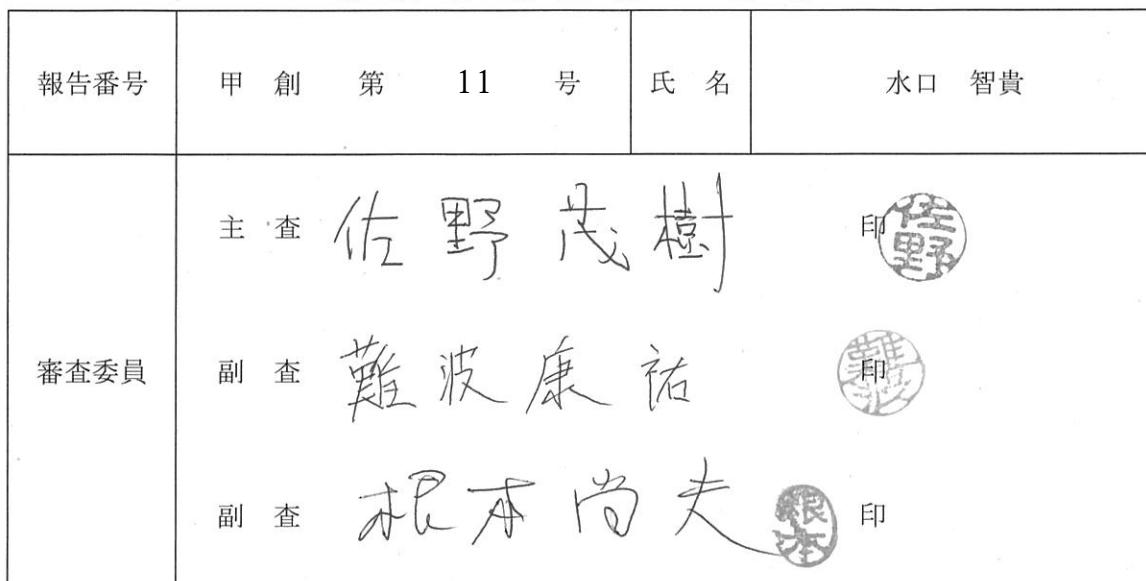 報告番号 甲 創 第 11 号 氏 名 水口 智貴
主 査 佐野茂樹 印 佐野
審査委員 副 査 難波康祐 印 難波
副 査 根本尚夫 根本 印